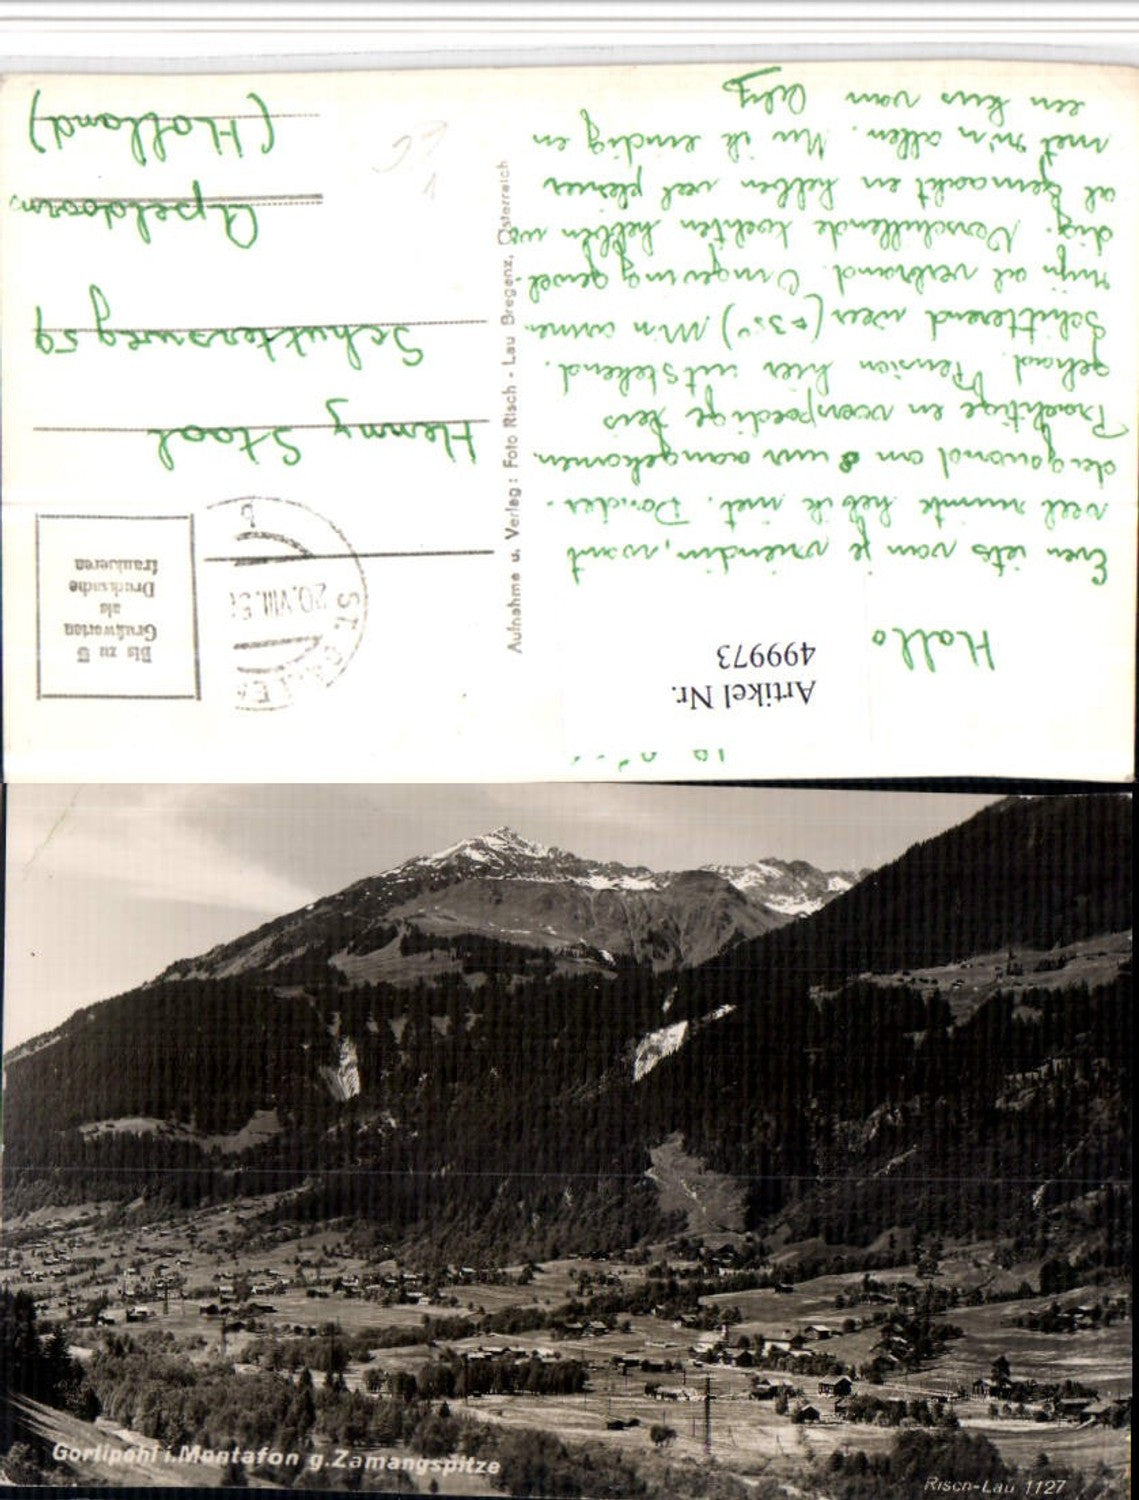 Artikel Nr.
499973
Hallo
Even iets van je vriendin, want
veel ruimte heb ik niet. Donder-
dagavond om 8 uur aangekomen.
Prachtige en voorspoedige reis
gehad. Pension hier uitstekend.
Schitterend weer (±35°) M'n arme
mijn al verbrand. Omgeving gewel-
dig. Verschillende tochten hebben we
al gemaakt en hebben veel plezier
met z'n allen. Nu ik eindig en
een kus van
Aufnahme u. Verlag: Foto Risch - Lau Bregenz, Österreich
Bis zu 5
Grußworten
als
Drucksache
frankieren
ST. GALLEN
20.VIII.5
b
Henny Staal
Schuttersweg 59
Apeldoorn.
(Holland)
Gortipohl i. Montafon g. Zamangspitze
Risch-Lau 1127